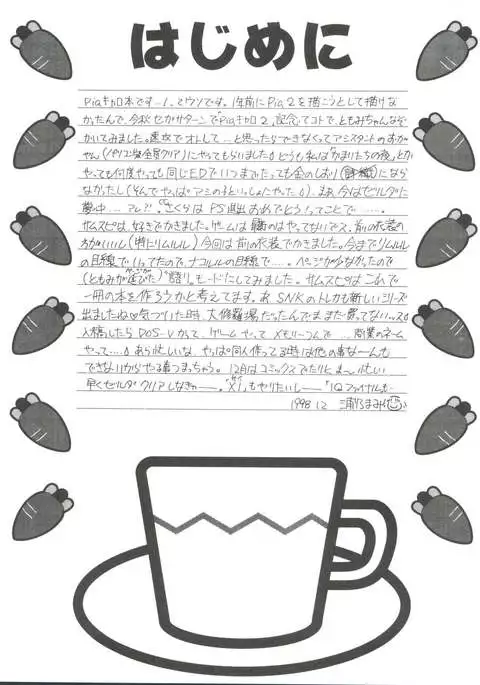 はじめに
Piaキャロ本です…!、マウソです。1年前にPia2を描こうとして描けな
かったんで、今秋セガサターンで"Piaキャロ2"記念ってコトで、ともみちゃんなぞ
かいてみました。速攻でオトして…と思ったらできなくってアシスタントの
さん(パソコン版全員クリア)にやってもらいました。どうも私は"かまいたちの夜"とか
やっても何度やっても同じEDでいつまでたっても金のしおりになら
なかったし(そんでやっぱアシのひとといっしょにやった。)、まあ、今はゼルダに
夢中…。アレ?、"さくらは PS進出おめでとう!ってことで……。
サムスピは、好きでかきました。ゲームは やってないデス。前の衣装の
方がいいし(特にリムルル)今回は前の衣装でかきました。今までリムルル
の目線でいってたので、ナコルルの目線で…。ページが少なかったので
(ともみが延びた)"語り"モードにしてみました。サムスピはこれで
一冊の本を作ろうかと考えてます。あ、SNKのトレカも新しいシリーズ
出ましたね♡気づいた時、大修羅場だったんでまだ買ってないッス。
入稿したら DOS-Vかって、ゲームやってメモリーつんで…商業のネーム
やって……。あら忙しいな、やっぱ同人作ってる時は他の事なーんも
できないからやる事つまっちゃう。12月はコミックスでたりとま〜忙しい
早くゼルダクリアしなきゃ——。"XI"もやりたいし——"I.Qファイナルも…
1998.12